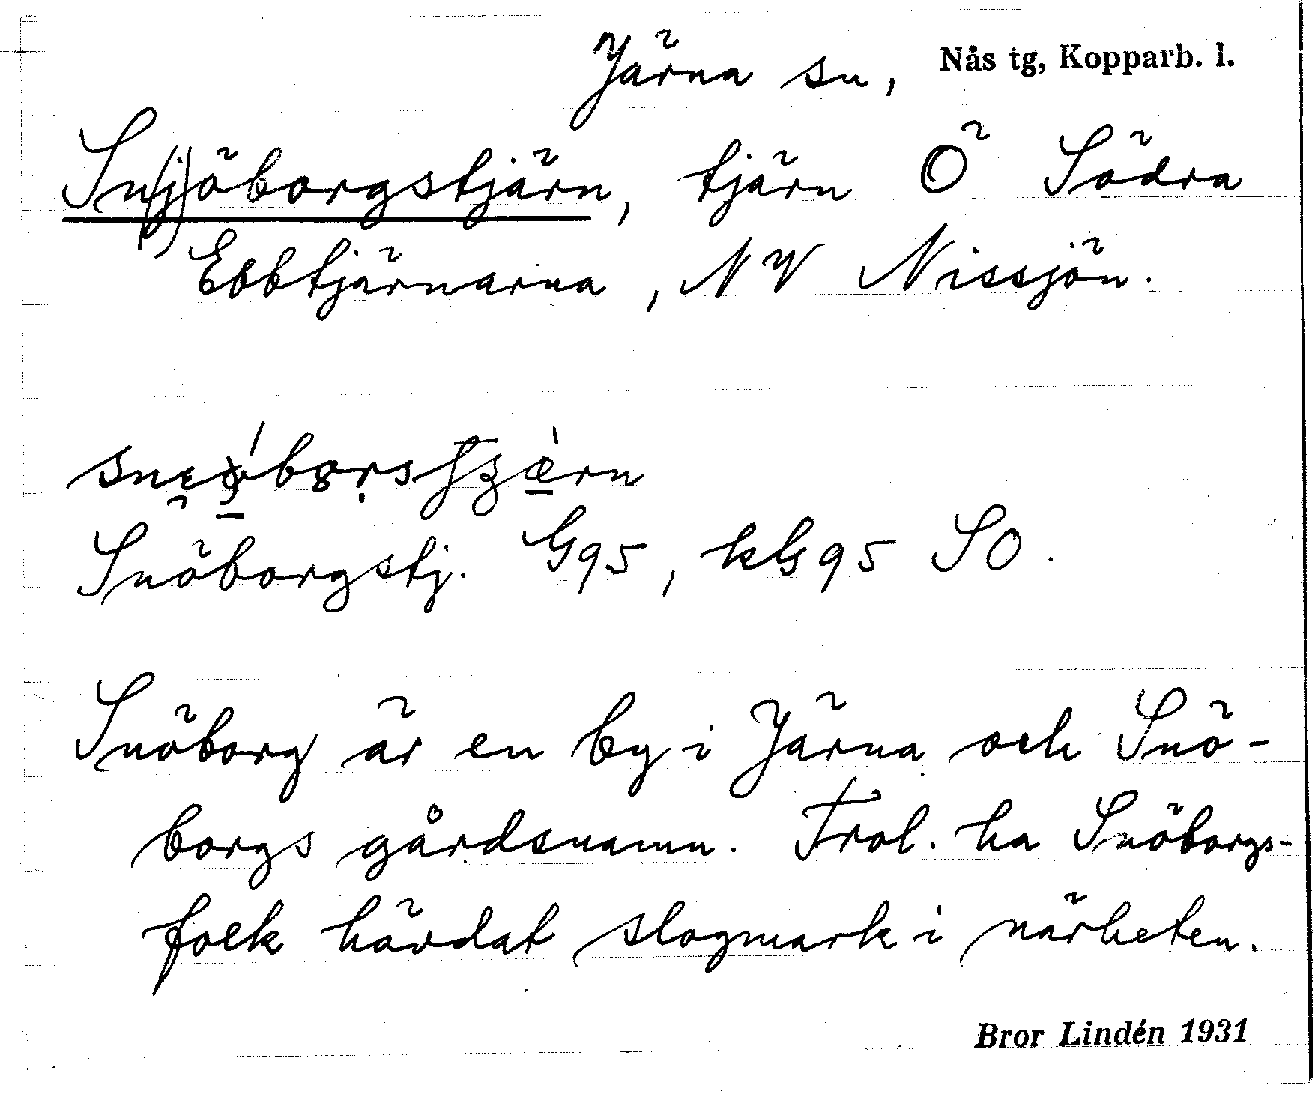 Järna sn, Nås tg, Kopparb. l.
Sn(j)öborgstjärn, tjärn Ö Södra
Ebbtjärnarna, NV Nissjön.
Snöborgstj. G95, kG95 SO.
Snöborg är en by i Järna och Snö-
borgs gårdsnamn. Trol. ha Snöborgs-
folk hävdat slogmark i närheten.
Bror Lindén 1931